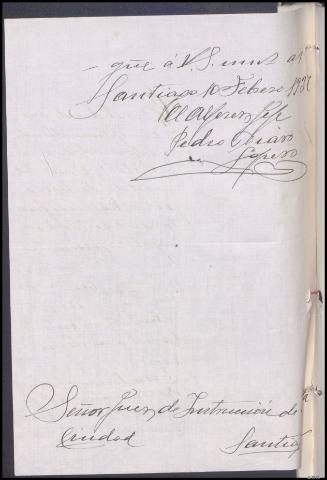 que á V. S. much as
Santiago 10 Febrero 1937
El Alferez Jefe
Pedro Diaz
Lopez
Señor Juez de Instrucción de
Ciudad Santia